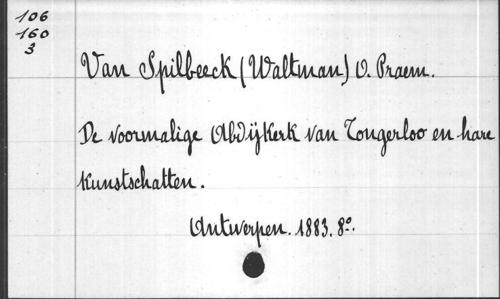 106
160
3
Van Spilbeeck (Waltman) O. Praem.
De voormalige Abdijkerk van Tongerloo en hare
kunstschatten.
Antwerpen. 1883. 8º.